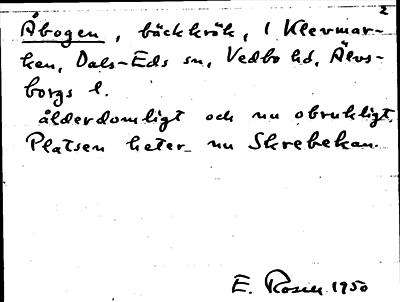 2
Åbogen, bäckkrök, i Klevmar-
ken, Dals-Eds sn, Vedbo hd, Älvs-
borgs l.
ålderdomligt och nu obrukligt.
Platsen heter nu Skrebekan.
E. Rosén 1950